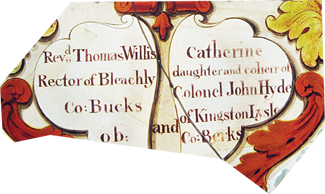 Revd Thomas Willis
Rector of Bleachly
Co: Bucks
ob:
and
Catherine
daughter and coheir of
Colonel John Hyde
of Kingston Lysle
Co: Berks